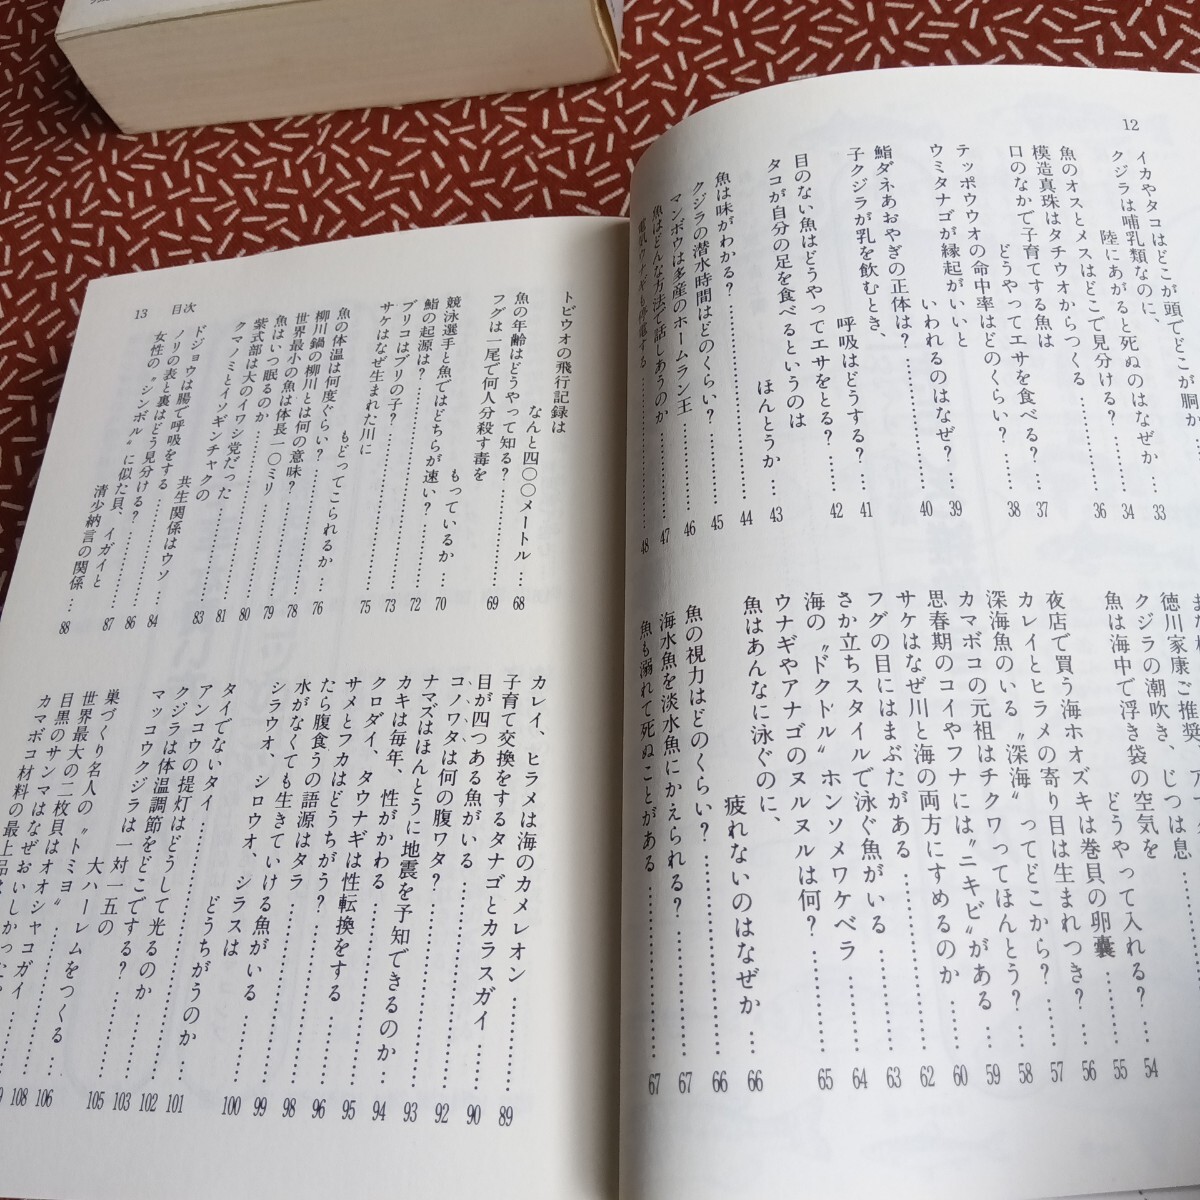 12
イカやタコはどこが頭でどこが胴か
クジラは哺乳類なのに、
陸にあがると死ぬのはなぜか……33
魚のオスとメスはどこで見分ける?……34
模造真珠はタチウオからつくる……36
口のなかで子育てする魚は
どうやってエサを食べる?……37
テッポウウオの命中率はどのくらい?……38
ウミタナゴが縁起がいいと
いわれるのはなぜ?……39
鮨ダネあおやぎの正体は?……40
子クジラが乳を飲むとき、
呼吸はどうする?……41
目のない魚はどうやってエサをとる?……42
タコが自分の足を食べるというのは
ほんとうか……43
魚は味がわかる?……44
クジラの潜水時間はどのくらい?……45
マンボウは多産のホームラン王……46
魚はどんな方法で話しあうのか……47
電気ウナギも停電する……48
徳川家康ご推奨、
クジラの潮吹き、じつは息……54
魚は海中で浮き袋の空気を
どうやって入れる?……55
夜店で買う海ホオズキは巻貝の卵嚢……56
カレイとヒラメの寄り目は生まれつき?……57
深海魚のいる〝深海〟ってどこから?……58
カマボコの元祖はチクワってほんとう?……59
思春期のコイやフナには〝ニキビ〟がある……60
サケはなぜ川と海の両方にすめるのか……62
フグの目にはまぶたがある……63
さか立ちスタイルで泳ぐ魚がいる……64
海の〝ドクトル〟ホンソメワケベラ……65
ウナギやアナゴのヌルヌルは何?……66
魚はあんなに泳ぐのに、
疲れないのはなぜか……66
魚の視力はどのくらい?……67
海水魚を淡水魚にかえられる?……67
魚も溺れて死ぬことがある……
13 目次
トビウオの飛行記録は
なんと四〇〇メートル……68
魚の年齢はどうやって知る?……69
フグは一尾で何人分殺す毒を
もっているか……70
競泳選手と魚ではどちらが速い?……72
鮨の起源は?……73
ブリコはブリの子?……75
サケはなぜ生まれた川に
もどってこられるか……76
魚の体温は何度ぐらい?……78
柳川鍋の柳川とは何の意味?……79
世界最小の魚は体長一〇ミリ……80
魚はいつ眠るのか……81
紫式部は大のイワシ党だった……83
クマノミとイソギンチャクの
共生関係はウソ……84
ドジョウは腸で呼吸をする……86
ノリの表と裏はどう見分ける?……87
女性の〝シンボル〟に似た貝、イガイと
清少納言の関係……88
カレイ、ヒラメは海のカメレオン……89
子育て交換をするタナゴとカラスガイ……90
目が四つある魚がいる……92
コノワタは何の腹ワタ?……93
ナマズはほんとうに地震を予知できるのか……94
カキは毎年、性がかわる……95
クロダイ、タウナギは性転換をする……96
サメとフカはどうちがう?……98
たら腹食うの語源はタラ……99
水がなくても生きていける魚がいる……100
シラウオ、シロウオ、シラスは
どうちがうのか……101
タイでないタイ……102
アンコウの提灯はどうして光るのか……103
クジラは体温調節をどこでする?……105
マッコウクジラは一対一五の
大ハーレムをつくる……106
巣づくり名人の〝トミヨ〟……108
世界最大の二枚貝はオオシャコガイ……
目黒のサンマはなぜおいしかった
カマボコ材料の最上品は